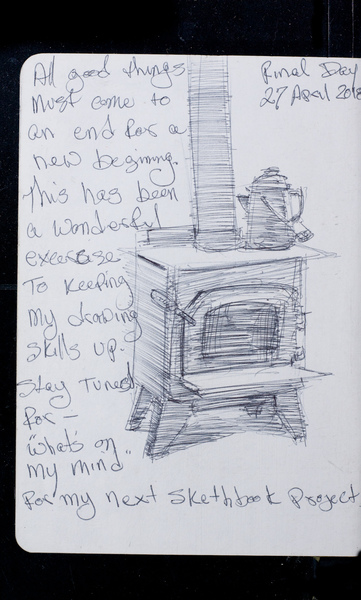 All good things
must come to
an end for a
new begining.
This has been
a wonderful
excersise
To keeping
my drawing
skills up.
Stay Tuned
for —
"what's on
my mind"
For my next Skethbook Project
Final Day
27 April 2018